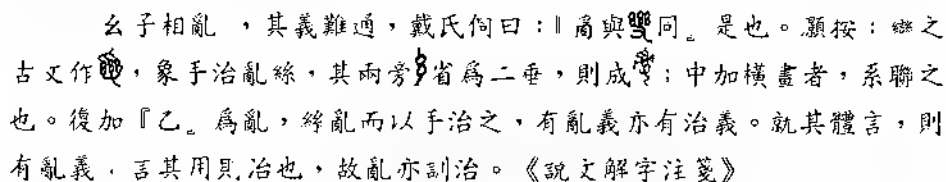 幺子相亂，其義難通，戴氏侗曰：『𤔔與同』是也。顥按：䜌之
古文作，象手治亂絲，其兩旁省爲二垂，則成；中加橫畫者，系聯之
也。復加『乙』爲亂，絲亂而以手治之，有亂義亦有治義。就其體言，則
有亂義，言其用則治也，故亂亦訓治。《說文解字注箋》